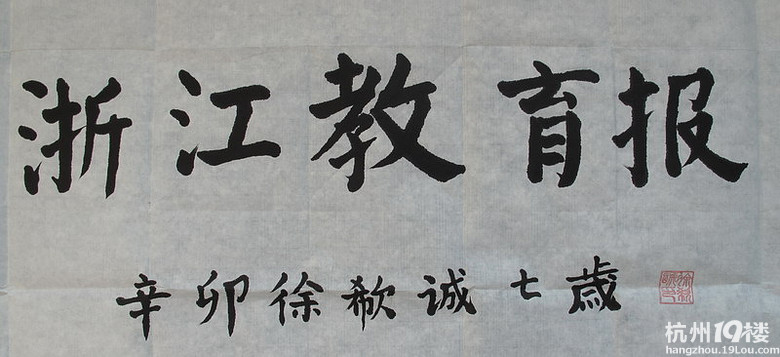 浙江教育报
辛卯徐欷诚七歳
杭州19楼
hangzhou.19Lou.com